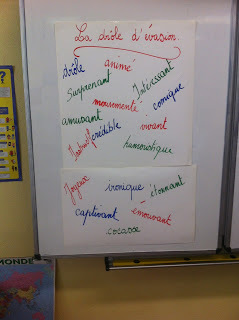 La drôle d'évasion.
drôle animé
Surprenant Intéressant
mouvementé comique
amusant
crédible vivant
humoristique
Joyeux ironique étonnant
captivant émouvant
cocasse
MONDE